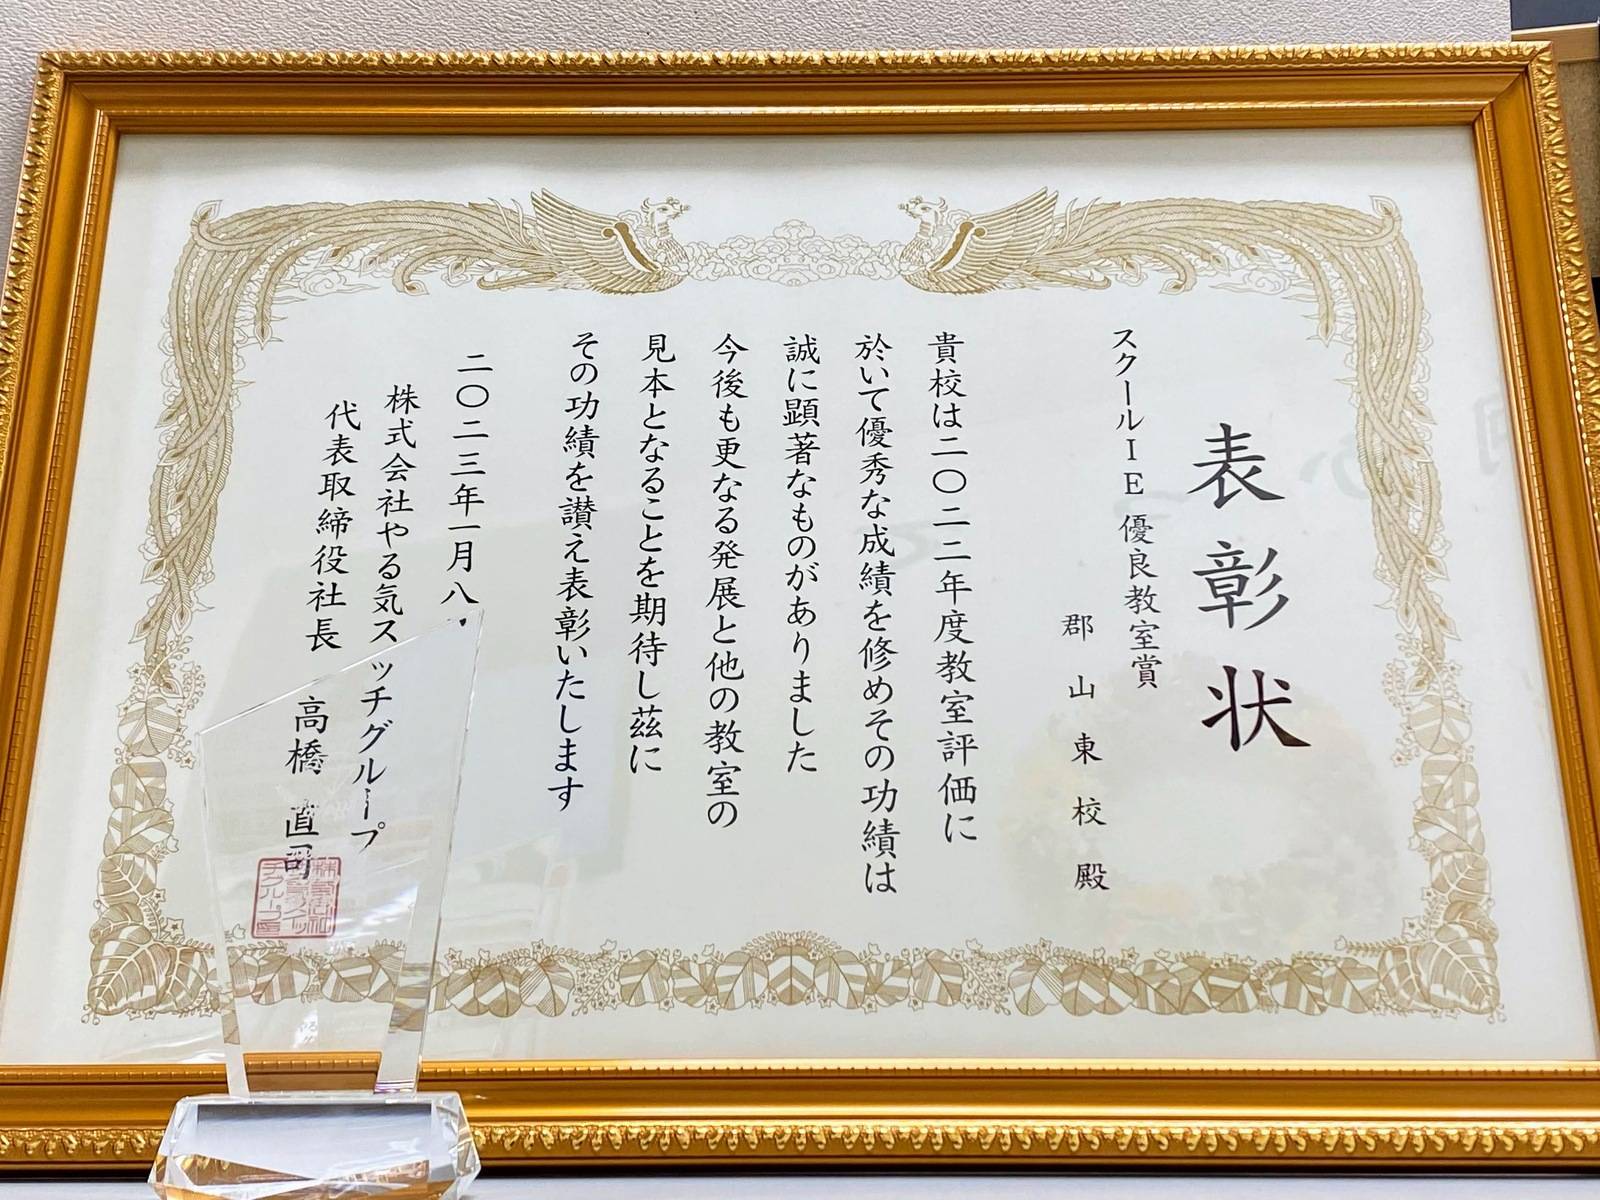 表彰状
スクールIE 優良教室賞
郡山東校殿
貴校は二〇二二年度教室評価に
於いて優秀な成績を修めその功績は
誠に顕著なものがありました
今後も更なる発展と他の教室の
見本となることを期待し茲に
その功績を讃え表彰いたします
二〇二三年一月八
株式会社やる気スイッチグループ
代表取締役社長 高橋 直司